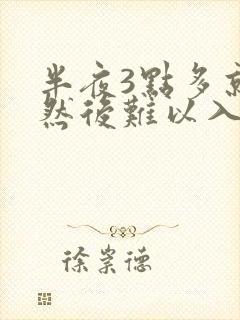 半夜3點多
然後難以入
徐崇德